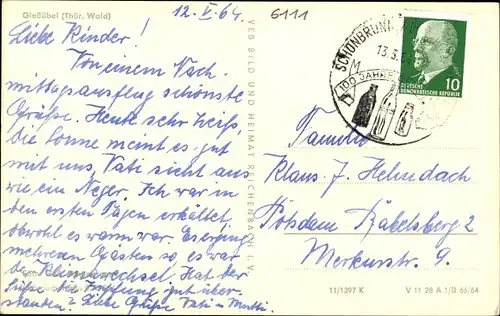 Gießübel (Thür. Wald)
12. V. 64
6111
Liebe Kinder!
Von einem Nach-
mittagsausflug schönste
Grüße. Heute sehr heiß,
die Sonne meint es gut
mit uns, Vati sieht aus
wie ein Neger. Ich war in
den ersten Tagen erkältet,
obwohl es warm war. Es erging
mehreren Gästen so, es war
der Klimawechsel. Hat der
die Impfung gut über-
standen? Liebe Grüße Vati u. Mutti
VEB BILD UND HEIMAT REICHENBACH I. V.
SCHÖNBRUNN
13.5.
100 JAHRE
DEUTSCHE
DEMOKRATISCHE REPUBLIK
10
Familie
Klaus-J. Helmdach
Potsdam Babelsberg 2
Merkurstr. 9.
11/1397 K
V 11 28 A 1/B 66/64